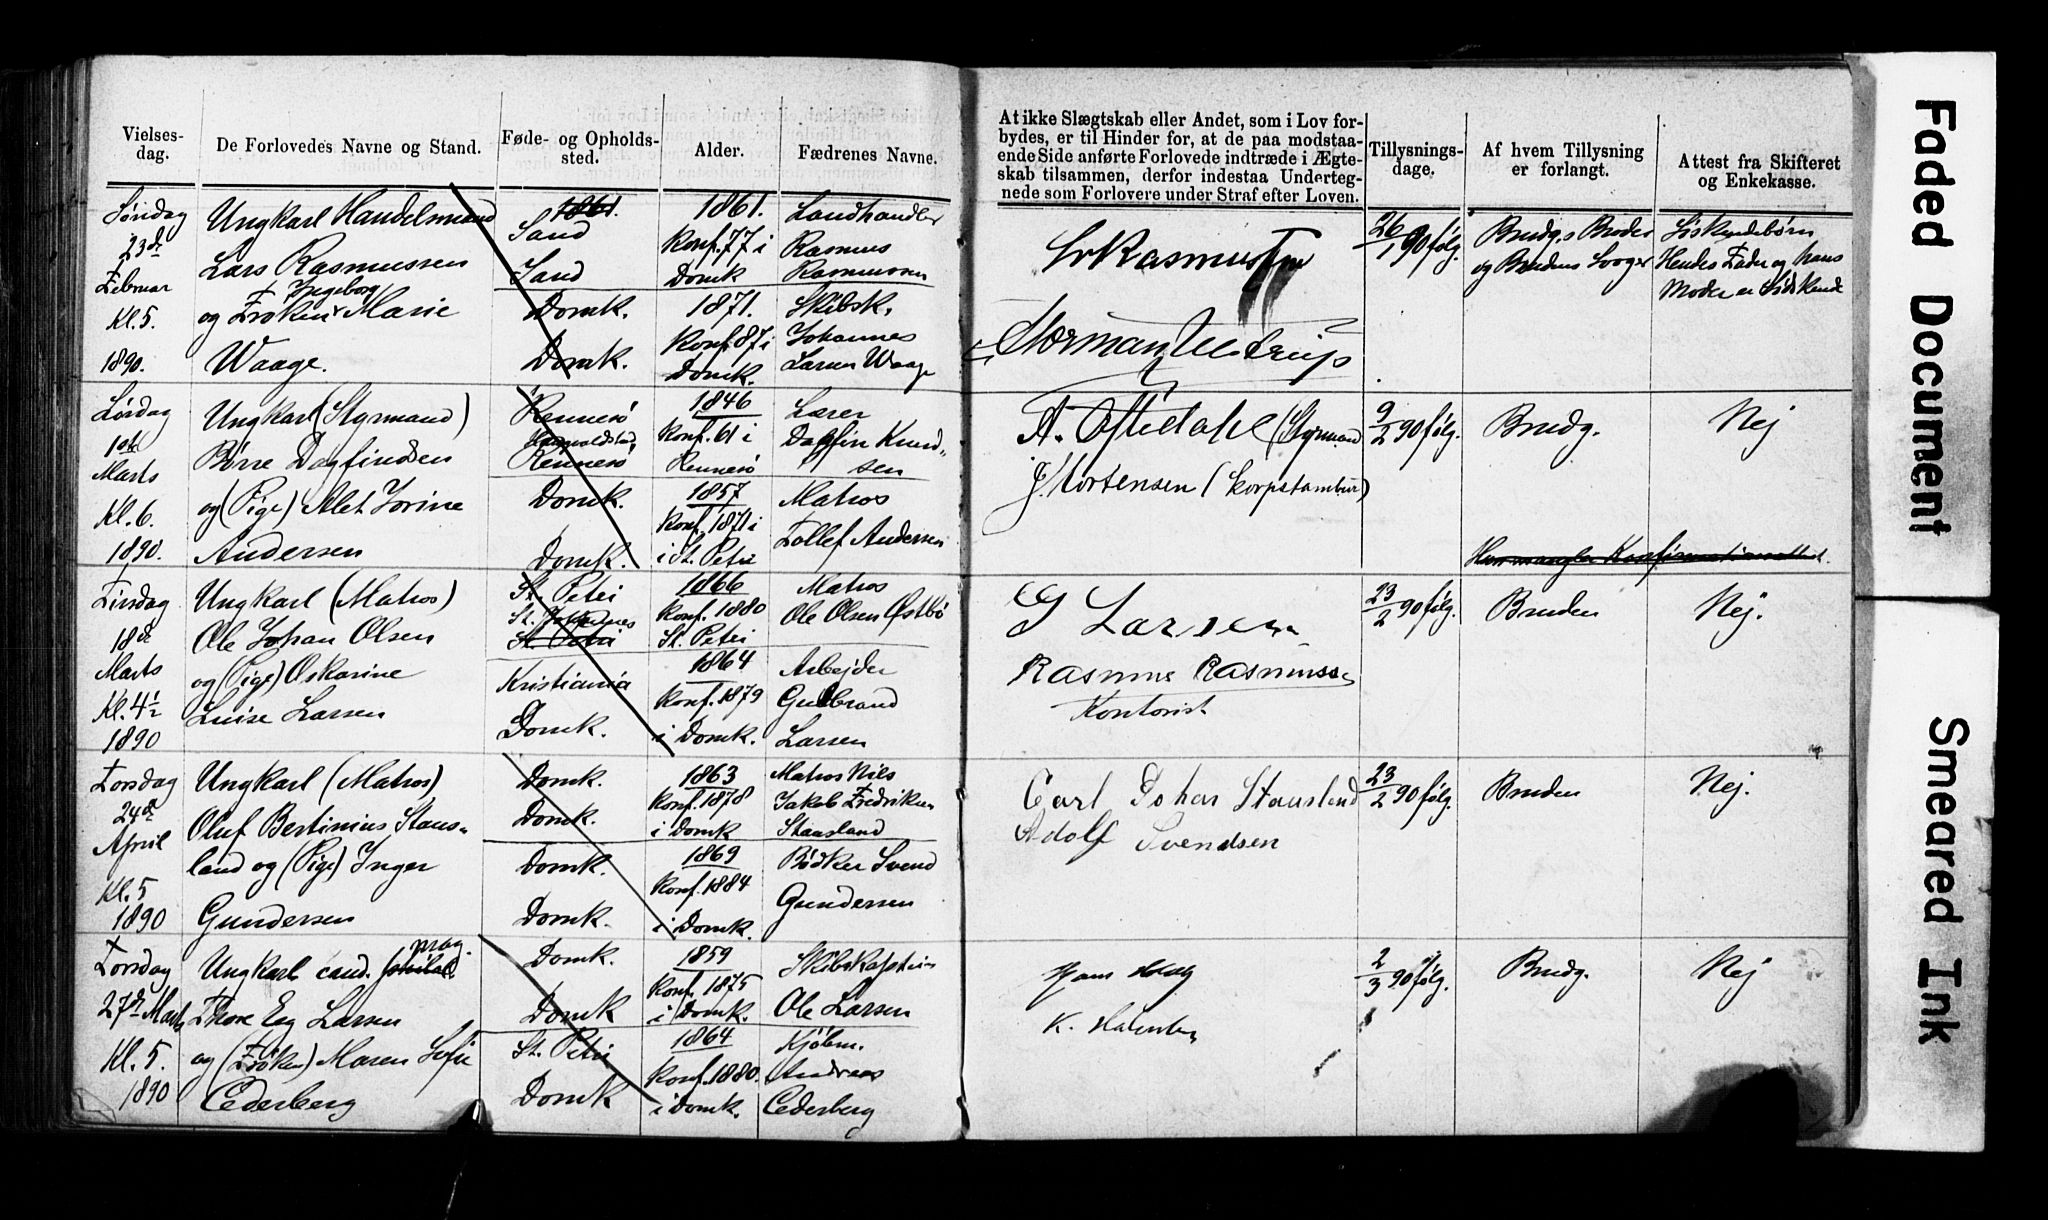 Vielses-
dag.
De Forlovedes Navne og Stand.
Føde- og Opholds-
sted.
Alder.
Fædrenes Navne.
At ikke Slægtskab eller Andet, som i Lov for-
bydes, er til Hinder for, at de paa modstaa-
ende Side anførte Forlovede indtræde i Ægte-
skab tilsammen, derfor indestaa Underteg-
nede som Forlovere under Straf efter Loven.
Tillysnings-
dage.
Af hvem Tillysning
er forlangt.
Attest fra Skifteret
og Enkekasse.
Søndag
23de
Februar
Kl. 5.
1890.
Ungkarl Handelsmand
Lars Rasmussen
Ingeborg
og Frøken Marie
Waage.
1861.
Sand
Sand
Domk.
Domk.
1861.
Konf. 77 i
Domk
1871.
Konf. 87 i
Domk.
Landhandler
Rasmus
Rasmussen
Skibsk.
Johannes
Larsen Waage
26/1 90 følg.
Brudg.s Broder
og Brudens Svoger
Siskendebørn
Hendes Fader og hans
Moder er Sødskende
Lørdag
1ste
Marts
Kl. 6.
1890.
Ungkarl (Styrmand)
Børre Dagfindsen
og (Pige) Alet Jorine
Andersen
Rennesö
Rennesö
Domk.
Domk.
1846
Konf. 61 i
Rennesö
1857
Konf. 1871 i
i St. Petri
Lærer
Dagfin Knud-
sen
Matros
Tollef Andersen
A. Oftedahl (Styrmand
J. Mortensen (Korpstambur)
9/2 90 følg.
Brudg.
Nej
Han mangler Konfirmationsattest.
Tirsdag
18de
Marts
Kl. 4½
1890
Ungkarl (Matros)
Ole Johan Olsen
og (Pige) Oskarine
Luise Larsen
St. Petri
St. Johannes
St. Petri
Kristiania
Domk.
1866
Konf. 1880
St. Petri
1864
Konf. 1879
i Domk.
Matros
Ole Olsen Østbö
Arbejder
Gulbrand
Larsen
G Larsen
Rasmus Rasmussen
Kontorist
23/2 90 følg.
Bruden
Nej.
Torsdag
24de
April
Kl. 5
1890
Ungkarl (Matros)
Oluf Bertinius Staus-
land og (Pige) Inger
Gundersen
Domk.
Domk.
Domk.
Domk.
1863
Konf. 1878
i Domk
1869
Konf. 1884
i Domk.
Matros Nils
Jakob Fredriksen
Stausland
Bödker Svend
Gundersen
Carl Johan Stausland
Adolf Svendsen
23/2 90 følg.
Bruden
Nej.
Torsdag
27de Marts
Kl. 5.
1890
Ungkarl cand.
Thore Eeg Larsen
og (Frøken) Maren Sofie
Cederberg
Domk.
Domk
St. Petri
Domk
1859
Konf. 1875
i Domk.
1864
Konf. 1880.
i Domk.
Skibskaptein
Ole Larsen
Kjøbm.
Andreas
Cederberg
2/3 90 følg.
Brudg.
Nej
Faded Document
Smeared Ink